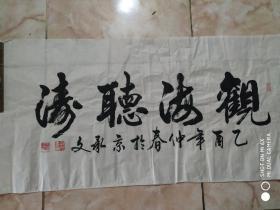 觀海聽濤
乙酉年仲春於京 承文
MI DUAL CAMERA